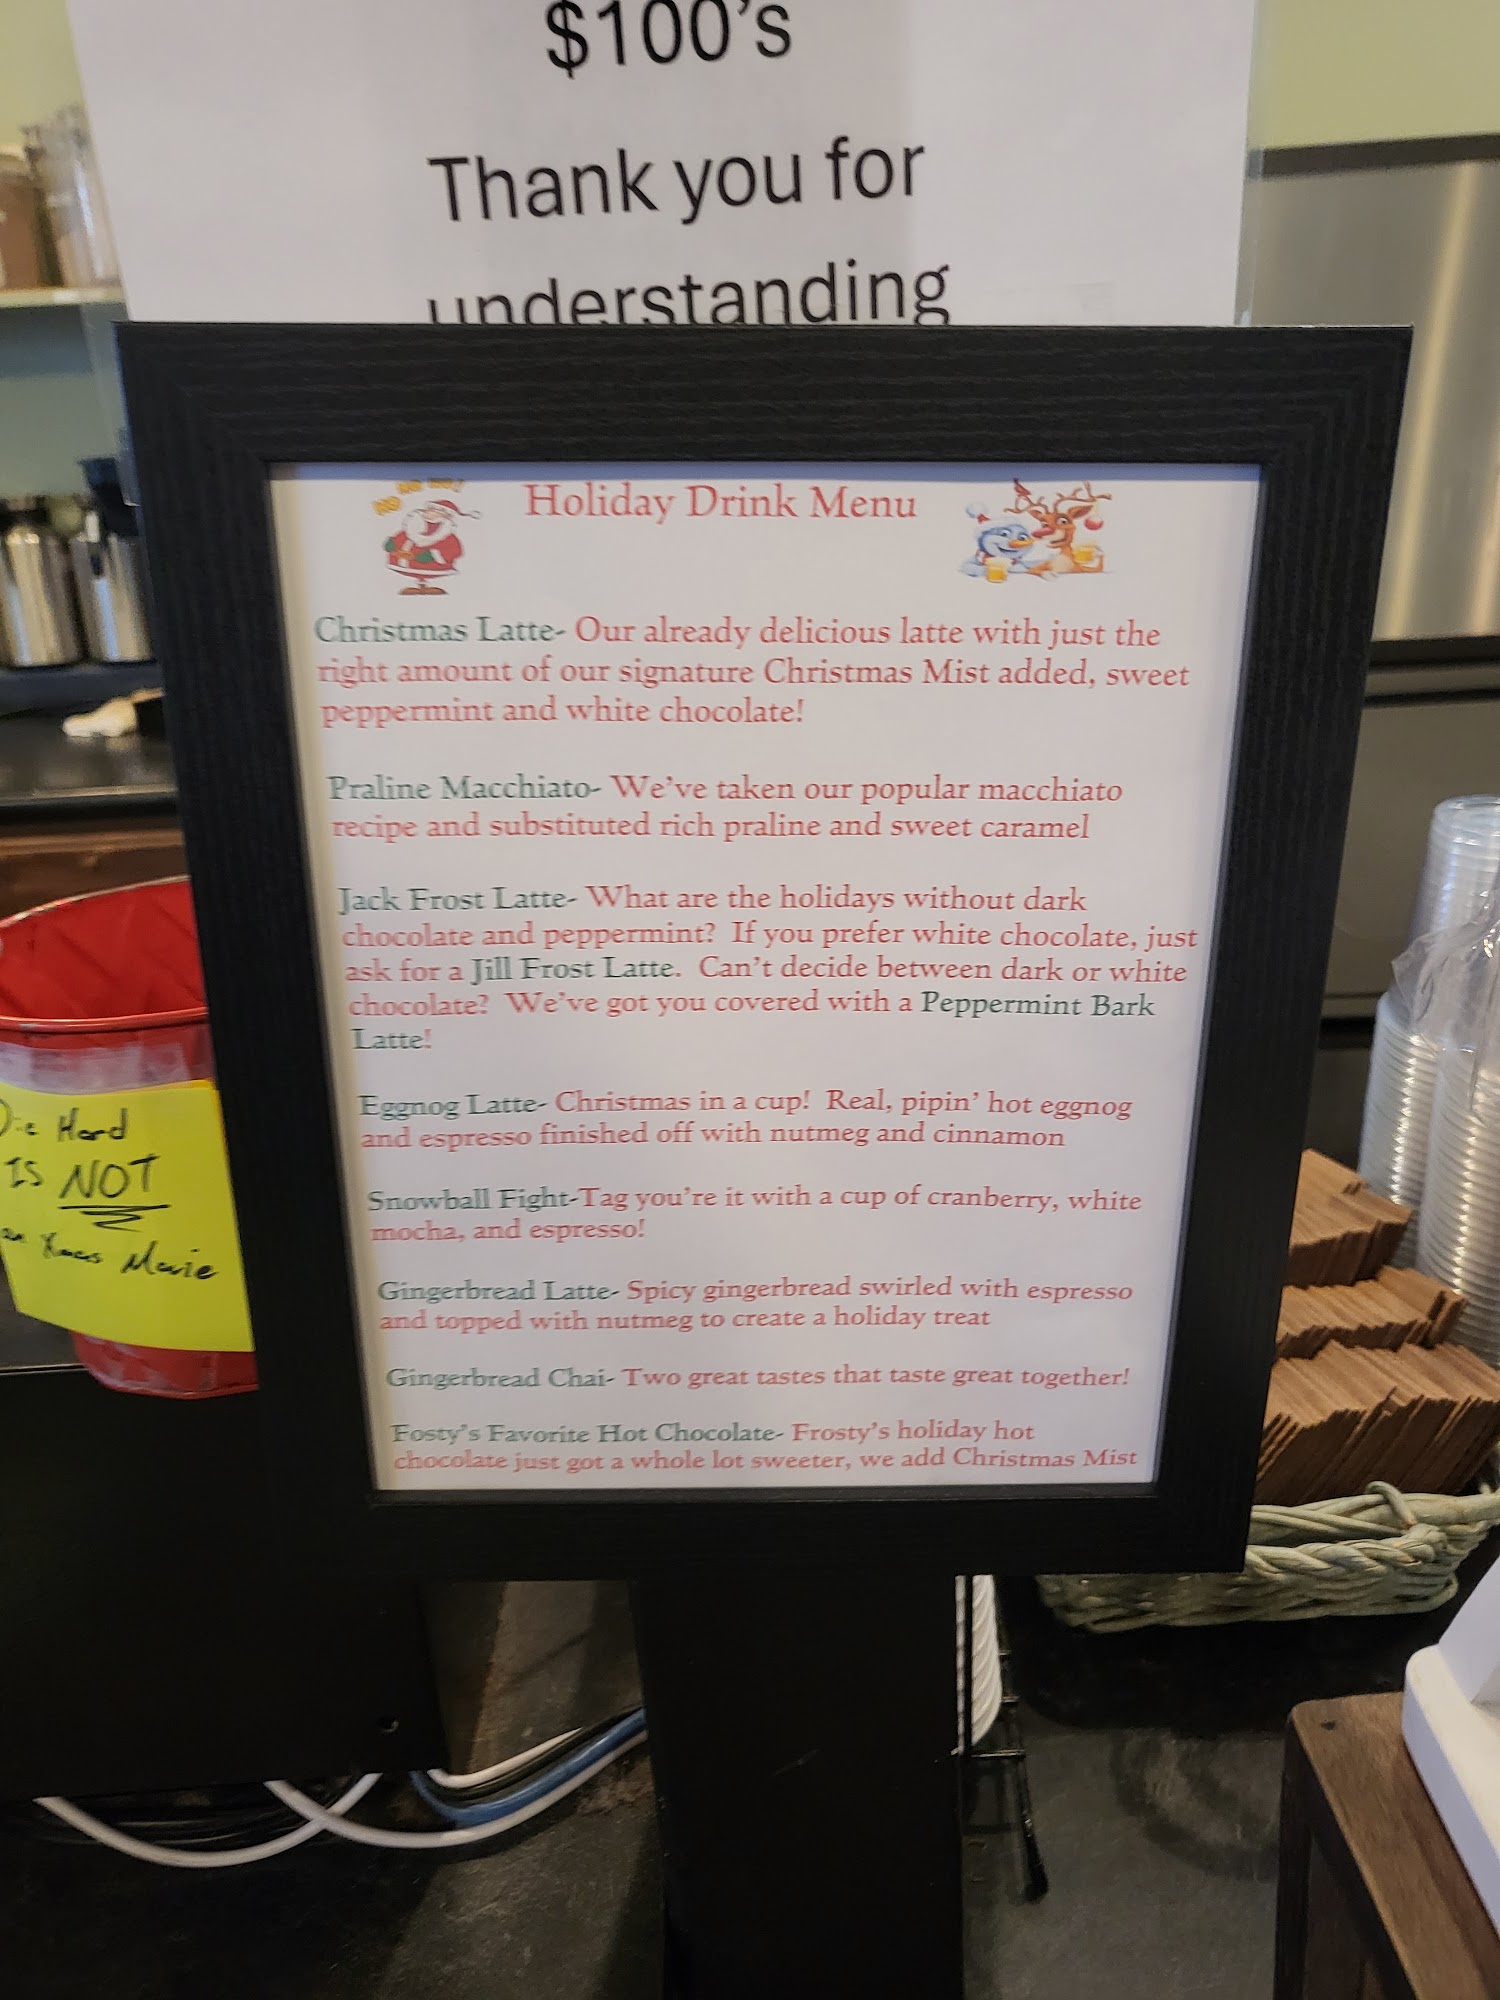 $100's
Thank you for
understanding
HO HO HO!
Holiday Drink Menu
Christmas Latte- Our already delicious latte with just the
right amount of our signature Christmas Mist added, sweet
peppermint and white chocolate!
Praline Macchiato- We've taken our popular macchiato
recipe and substituted rich praline and sweet caramel
Jack Frost Latte- What are the holidays without dark
chocolate and peppermint?  If you prefer white chocolate, just
ask for a Jill Frost Latte.  Can't decide between dark or white
chocolate?  We've got you covered with a Peppermint Bark
Latte!
Eggnog Latte- Christmas in a cup!  Real, pipin' hot eggnog
and espresso finished off with nutmeg and cinnamon
Snowball Fight-Tag you're it with a cup of cranberry, white
mocha, and espresso!
Gingerbread Latte- Spicy gingerbread swirled with espresso
and topped with nutmeg to create a holiday treat
Gingerbread Chai- Two great tastes that taste great together!
Fosty's Favorite Hot Chocolate- Frosty's holiday hot
chocolate just got a whole lot sweeter, we add Christmas Mist
Die Hard
IS NOT
an Xmas Movie